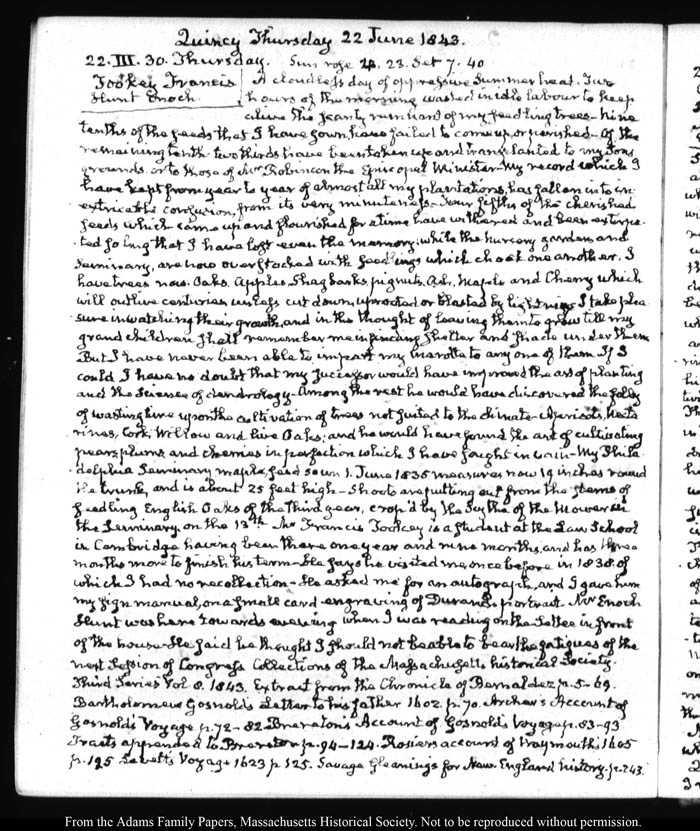 Quincy Thursday 22 June 1843.
22. III. 30. Thursday. Sun rose 4. 23. Set 7. 40
Tookey Francis A cloudless day of oppressive Summer heat. Two
Hunt Enoch. hours of the morning wasted in idle labour to keep
alive the scanty remnant of my seedling trees – nine
tenths of the seeds that I have sown, have failed to come up, or perished – of the
remaining tenth two thirds have been taken up and transplanted to my Sons
grounds or to those of Mr Robinson the Episcopal Minister – My record which I
have kept from year to year of almost all my plantations, has fallen into in-
extricable confusion, from its very minuteness – Four fifths of the cherished
seeds which came up and flourished for a time have withered and been extirpa-
ted so long that I have lost even the memory; while the nursery garden, and
Seminary, are now overstocked with seedlings which choak one another. I
have trees now. Oaks, Apples, Shagbarks, pignuts, Ash, Maple and Cherry which
will outlive centuries unless cut down, uprooted or blasted by lightning. I take plea-
sure in watching their growth, and in the thought of leaving them to grow till my
grand children shall remember me in finding shelter and shade under them
But I have never been able to impart my to any one of them. If I
could I have no doubt that my Successor would have improved the art of planting
and the Science of dendrology – Among the rest he would have discovered the folly
of wasting time upon the cultivation of trees not suited to the climate – Apricots, Necta-
rines, Cork, Willow and live Oaks; and he would have found the art of cultivating
pears plums and cherries in perfection which I have sought in vain – My Phila-
delphia Seminary maple, seed sown 1. June 1835 measures now 19 inches round
the trunk, and is about 25 feet high – Shoots are putting out from the stems of
seedling English Oaks of the third year, crop'd by the Scythe of the Mower in
the Seminary, on the 13th Mr Francis Tookey is a student at the Law School
in Cambridge having been there one year and nine months, and has three
months more to finish his term – He says he visited me, once before in 1838. of
which I had no recollection – He asked me for an autograph, and I gave him
my sign manual, on a small card – engraving of Durand's portrait. Mr Enoch
Hunt was here towards evening when I was reading on the Settee in front
of the house – He said he thought I should not be able to bear the fatigues of the
next Session of Congress. Collections of the Massachusetts historical Society.
Third Series Vol 8. 1843. Extract from the Chronicle of Bernaldez p. 5–69.
Bartholomew Gosnold's Letter to his father 1602. p. 70. Archer's Account of
Gosnold's Voyage p. 72–82 Brereton's Account of Gosnold's Voyage p. 83–93
Tracts appended to Brereton p. 94–124. Rosiers account of Waymouth's 1605
p. 125 Levett's Voyage 1623 p. Savage Gleanings for New England history. p. 243.
From the Adams Family Papers, Massachusetts Historical Society. Not to be reproduced without permission.